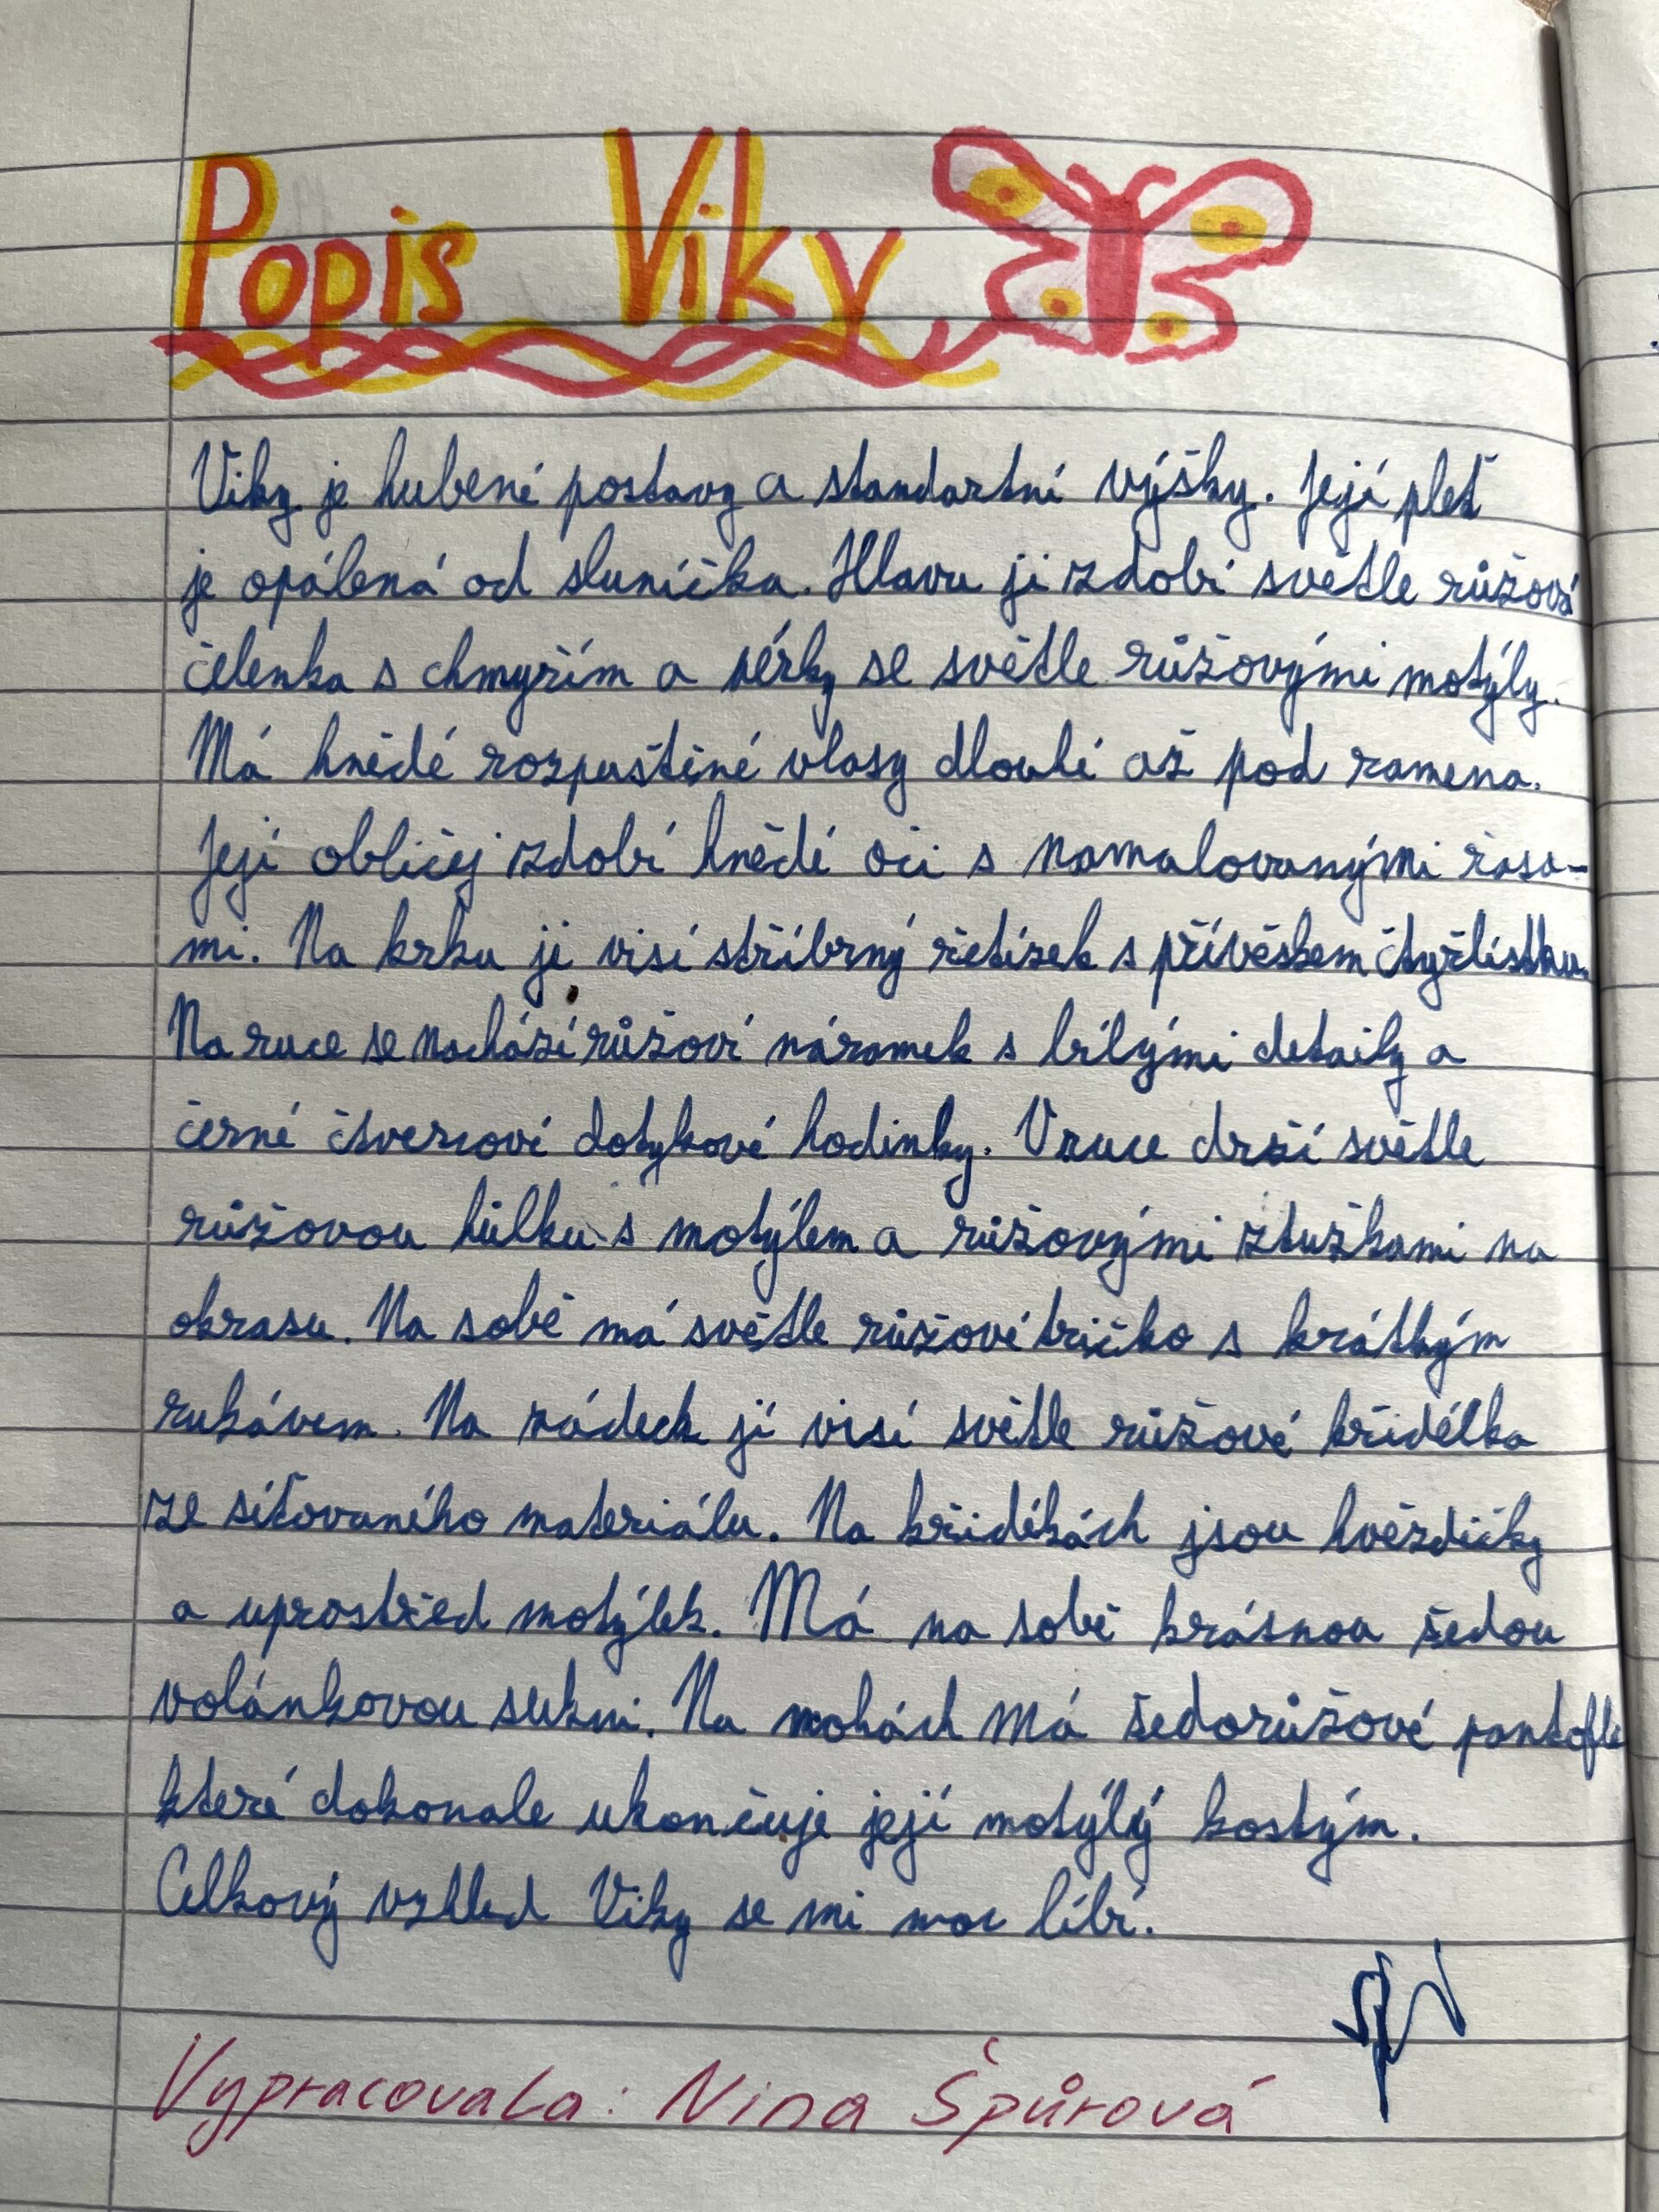 Popis Viky
Viky je hubené postavy a standartní výšky. Její pleť
je opálená od sluníčka. Hlavu ji zdobí světle růžová
čelenka s chmýřím a pérky se světle růžovými motýly.
Má hnědé rozpuštěné vlasy dlouhé až pod ramena.
Její obličej zdobí hnědé oči s namalovanými řasa-
mi. Na krku ji visí stříbrný řetízek s přívěskem čtyřlístku.
Na ruce se nachází růžoví náramek s bílými detaily a
černé čtvercové dotykové hodinky. V ruce drží světle
růžovou hůlku s motýlem a růžovými stužkami na
okrasu. Na sobě má světle růžové tričko s krátkým
rukávem. Na zádech jí visí světle růžové křidélka
ze síťovaného materiálu. Na křidélkách jsou hvězdičky
a uprostřed motýlek. Má na sobě krásnou šedou
volánkovou sukni. Na nohách má šedorůžové pantofle
které dokonale ukončuje její motýlý kostým.
Celkový vzhled Viky se mi moc líbí.
Vypracovala: Nina Špůrová